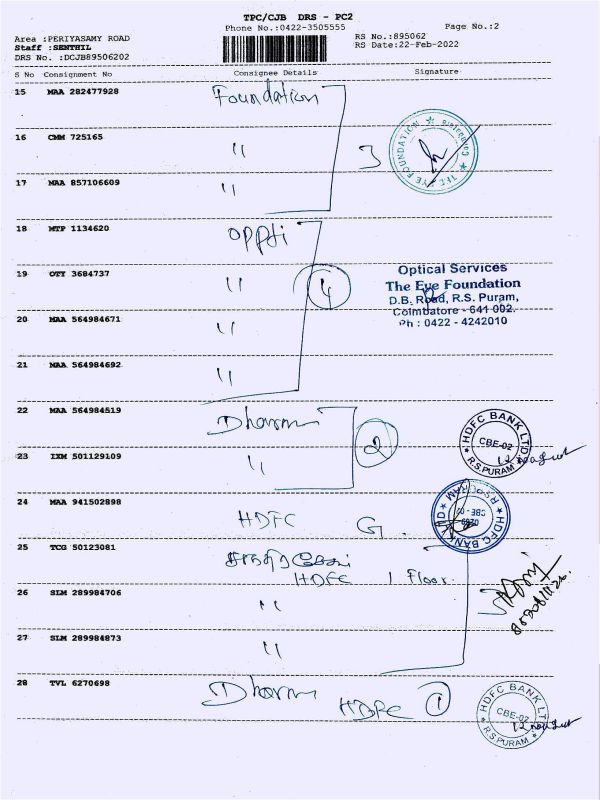 TPC/CJB DRS - PC2
Phone No.:0422-3505555
Page No.:2
Area :PERIYASAMY ROAD
Staff :SENTHIL
DRS No. :DCJB89506202
RS No.:895062
RS Date:22-Feb-2022
S No Consignment No Consignee Details Signature
15 MAA 282477928 Foundation
16 CMM 725165 "
3
THE EYE FOUNDATION
17 MAA 857106609 "
18 MTP 1134620
19 OTY 3684737 "
4
Optical Services
The Eye Foundation
D.B. Road, R.S. Puram,
Coimbatore - 641 002.
Ph : 0422 - 4242010
20 MAA 564984671 "
21 MAA 564984692 "
22 MAA 564984519 Dharm
2
HDFC BANK LTD
CBE-02
R.S.PURAM
23 IXM 501129109 "
24 MAA 941502898 HDFC G.
HDFC BANK LTD
25 TCG 50123081
HDFC 1 Floor.
26 SLM 289984706 "
3
27 SLM 289984873 "
28 TVL 6270698 Dharm HDFC 1
HDFC BANK LTD
CBE-02
R.S.PURAM